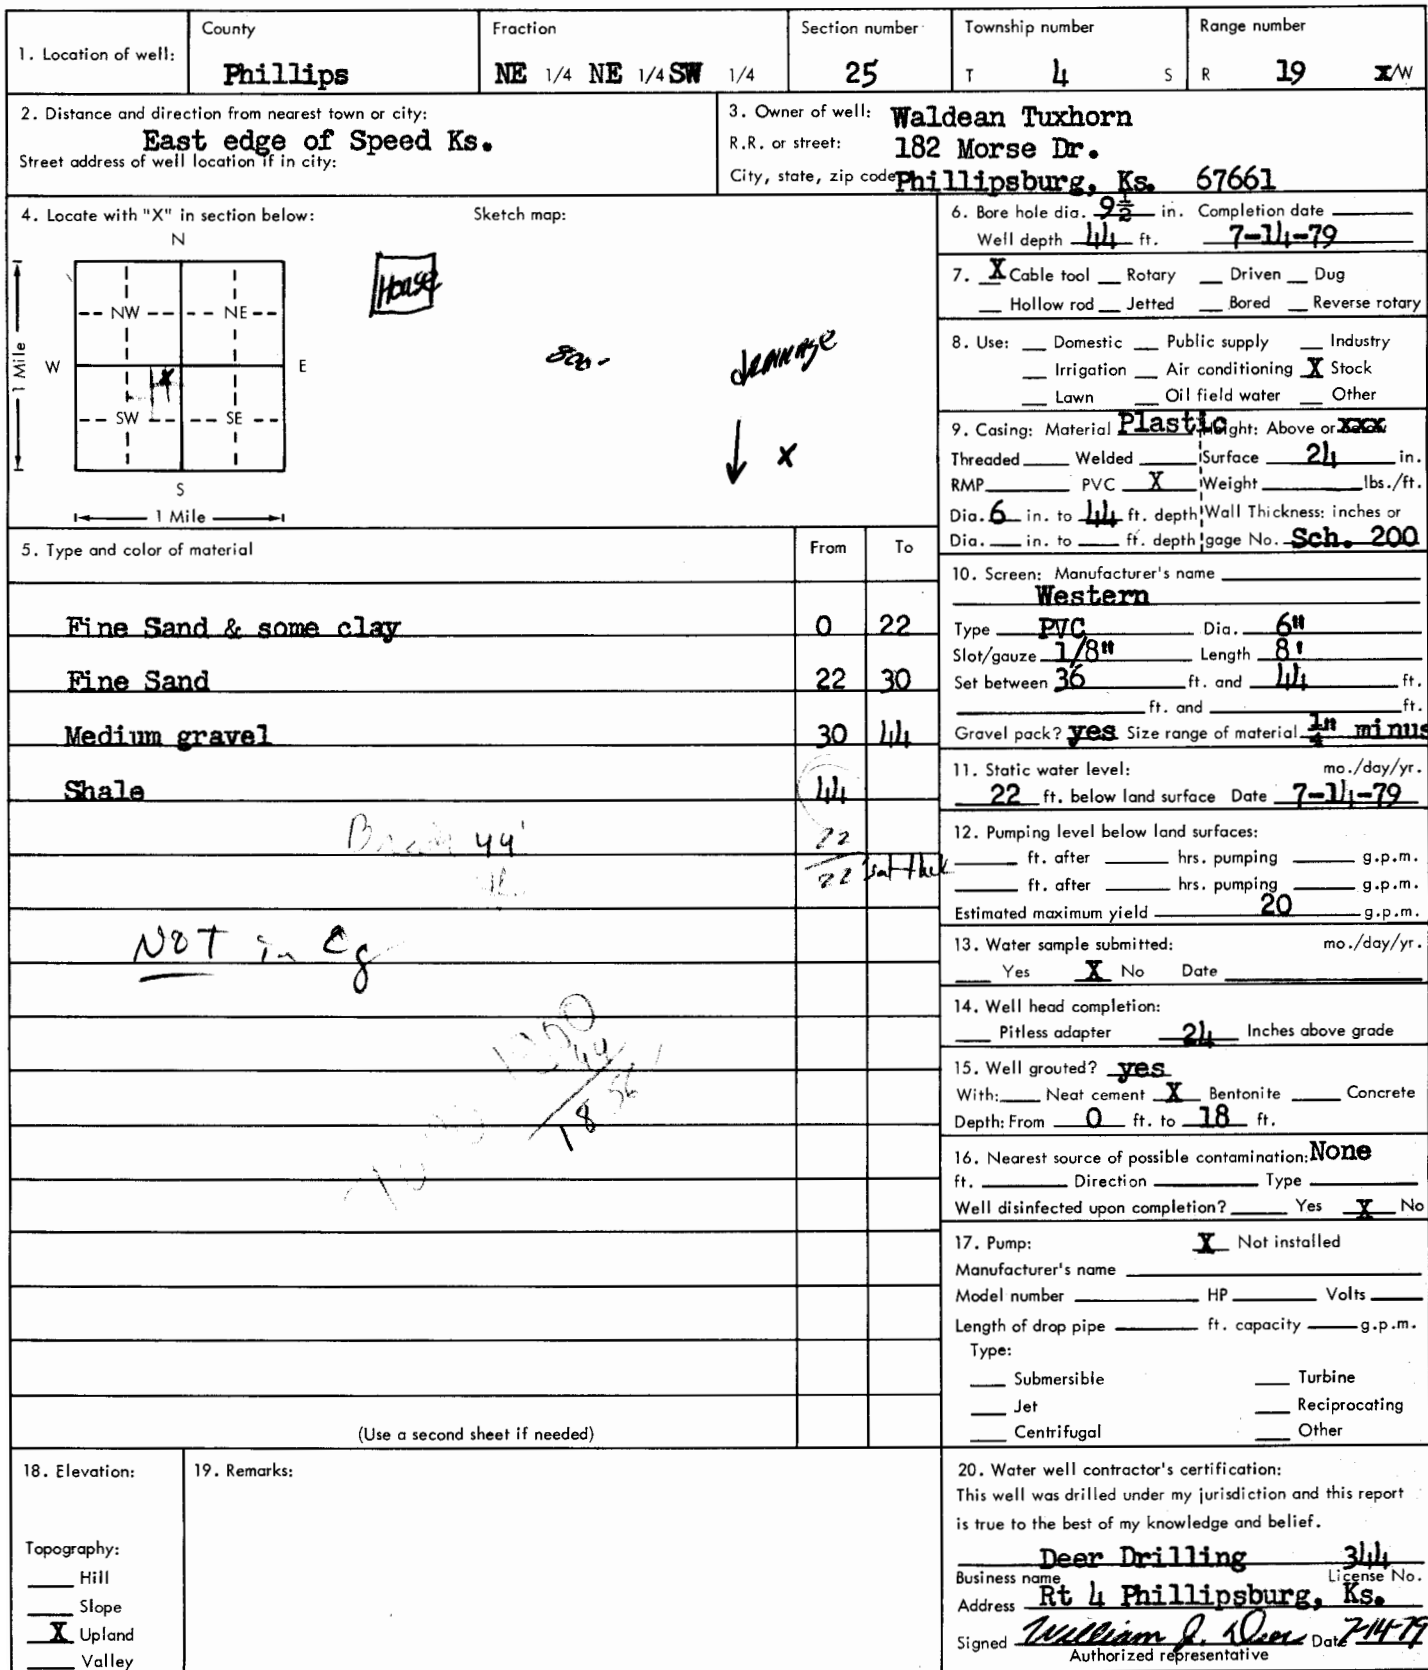 1. Location of well:
County
Phillips
Fraction
NE 1/4 NE 1/4 SW 1/4
Section number
25
Township number
T 4 S
Range number
R 19 X/W
2. Distance and direction from nearest town or city:
East edge of Speed Ks.
Street address of well location if in city:
3. Owner of well: Waldean Tuxhorn
R.R. or street: 182 Morse Dr.
City, state, zip code Phillipsburg, Ks. 67661
4. Locate with "X" in section below:
Sketch map:
N
NW NE
W E
X
SW SE
S
1 Mile
1 Mile
House
drainage
X
5. Type and color of material From To
Fine Sand & some clay 0 22
Fine Sand 22 30
Medium gravel 30 44
Shale 44
44' 22
22
NOT in Cg
44
18 56
(Use a second sheet if needed)
6. Bore hole dia. 9½ in. Completion date
Well depth 44 ft. 7-14-79
7. X Cable tool Rotary Driven Dug
Hollow rod Jetted Bored Reverse rotary
8. Use: Domestic Public supply Industry
Irrigation Air conditioning X Stock
Lawn Oil field water Other
9. Casing: Material Plastic Height: Above or xxx
Threaded Welded Surface 24 in.
RMP PVC X Weight lbs./ft.
Dia. 6 in. to 44 ft. depth Wall Thickness: inches or
Dia. in. to ft. depth gage No. Sch. 200
10. Screen: Manufacturer's name
Western
Type PVC Dia. 6"
Slot/gauze 1/8" Length 8'
Set between 36 ft. and 44 ft.
ft. and ft.
Gravel pack? yes Size range of material ¼" minus
11. Static water level: mo./day/yr.
22 ft. below land surface Date 7-14-79
12. Pumping level below land surfaces:
ft. after hrs. pumping g.p.m.
ft. after hrs. pumping g.p.m.
Estimated maximum yield 20 g.p.m.
13. Water sample submitted: mo./day/yr.
Yes X No Date
14. Well head completion:
Pitless adapter 24 Inches above grade
15. Well grouted? yes
With: Neat cement X Bentonite Concrete
Depth: From 0 ft. to 18 ft.
16. Nearest source of possible contamination: None
ft. Direction Type
Well disinfected upon completion? Yes X No
17. Pump: X Not installed
Manufacturer's name
Model number HP Volts
Length of drop pipe ft. capacity g.p.m.
Type:
Submersible Turbine
Jet Reciprocating
Centrifugal Other
18. Elevation:
Topography:
Hill
Slope
X Upland
Valley
19. Remarks:
20. Water well contractor's certification:
This well was drilled under my jurisdiction and this report
is true to the best of my knowledge and belief.
Deer Drilling 344
Business name License No.
Address Rt 4 Phillipsburg, Ks.
Signed William J. Deer Date 7-14-79
Authorized representative